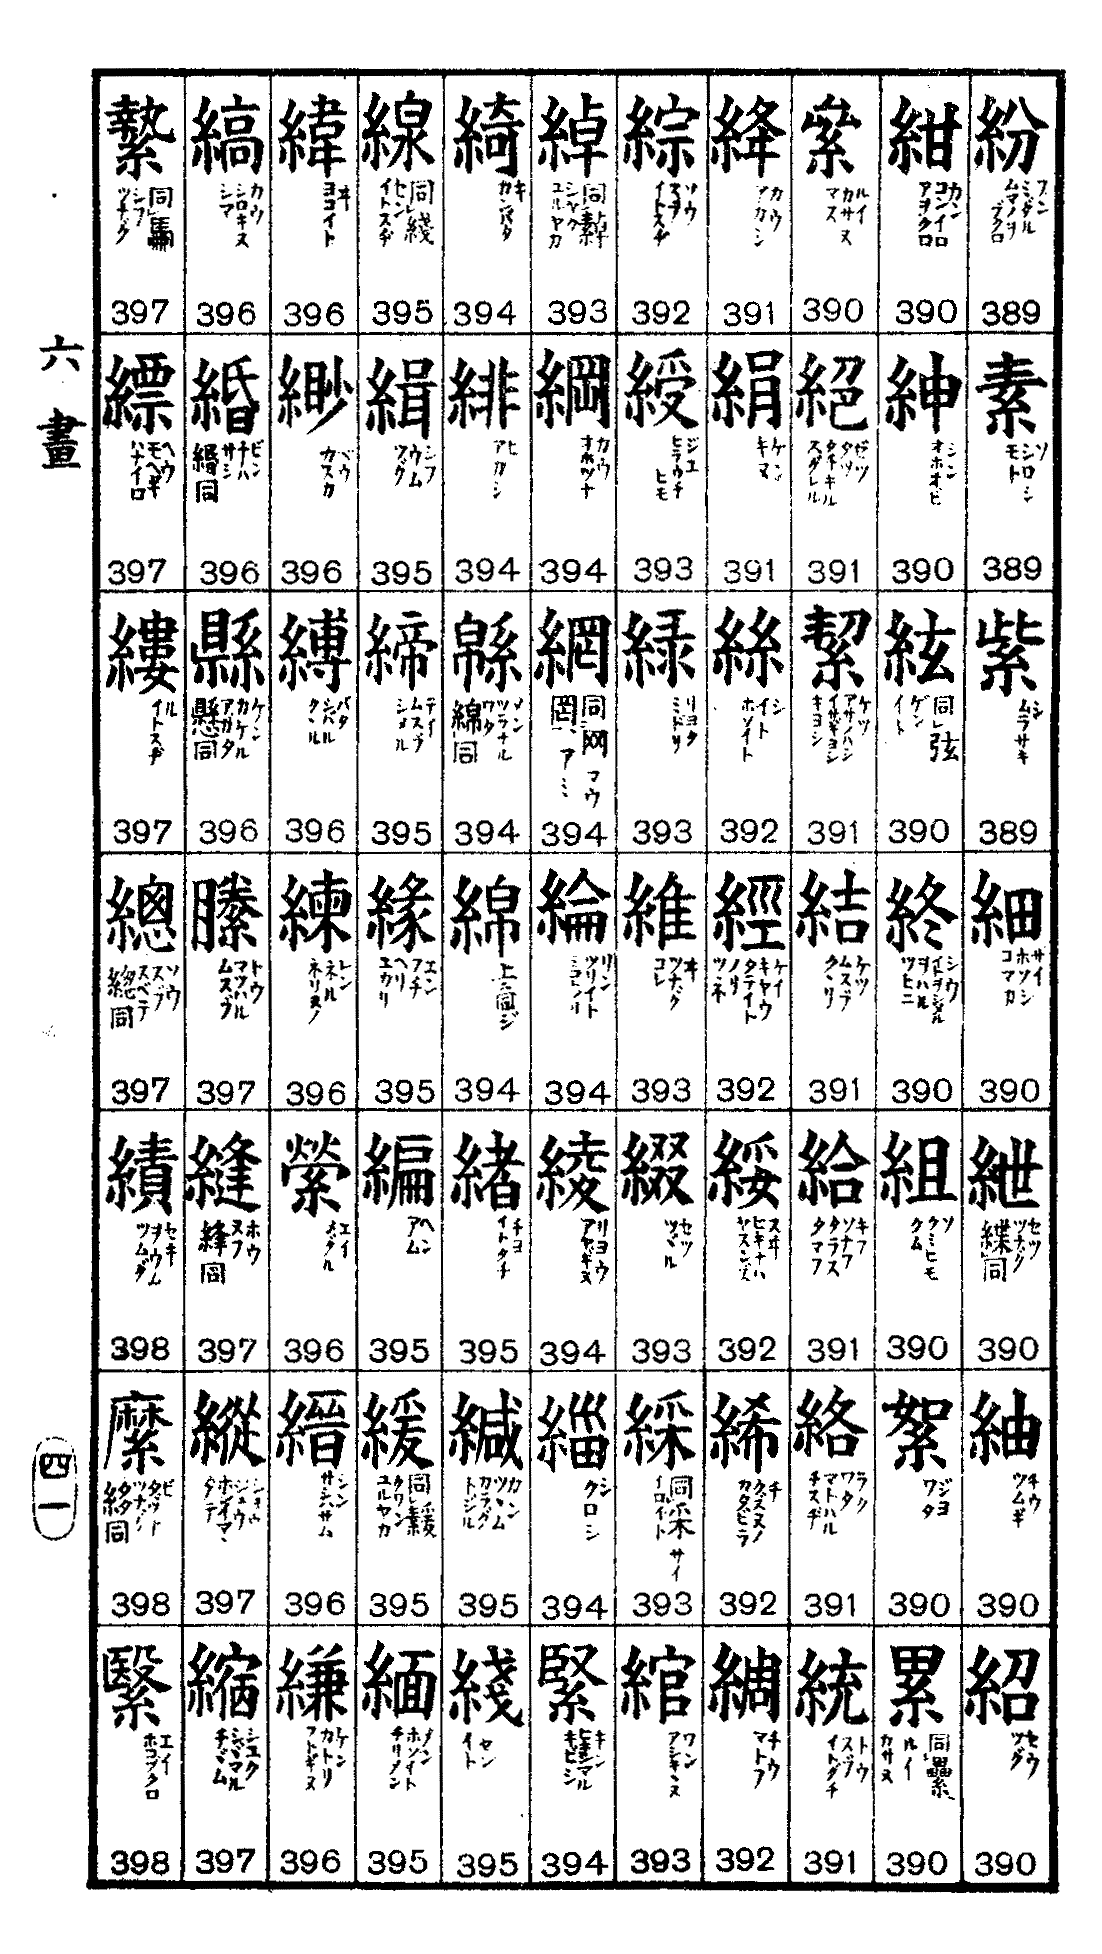 紛
フン
ミダル
ムマノヲ
ブクロ
389
素
ソ
シロシ
モト
389
紫
シ
ムラサキ
389
細
サイ
ホソシ
コマカ
390
紲
セツ
ツナグ
緤同
390
紬
チウ
ツムギ
390
紹
セウ
ツグ
390
紺
カン
コンイロ
アヲクロ
390
紳
シン
オホオビ
390
絃
同弦
ゲン
イト
390
終
シウ
ヲハル
ツヒニ
390
組
ソ
クミヒモ
クム
390
絮
ジヨ
ワタ
390
累
同纍
ルイ
カサヌ
390
絫
ルイ
カサヌ
マス
390
絕
ゼツ
タツ
タヘキル
スグレル
391
絜
ケツ
アサノハン
イサギヨシ
キヨシ
391
結
ケツ
ムスブ
クヽリ
391
給
キフ
ソナフ
タラス
タマフ
391
絡
ラク
ワタ
マトハル
チスヂ
391
統
トウ
スブ
イトグチ
391
絳
カウ
アカシ
391
絹
ケン
キヌ
391
絲
シ
イト
ホソイト
392
經
ケイ
キヤウ
タテイト
ノリ
ツネ
392
綏
スヰ
ヒキナハ
ヤスンズ
392
絺
チ
クズヌノ
カタビラ
392
綢
チウ
マトフ
392
綜
ソウ
スブ
イトスヂ
392
綬
ジユ
ヒラウチ
ヒモ
393
綠
リヨク
ミドリ
393
維
ヰ
ツナグ
コレ
393
綴
セツ
ツヾル
393
綵
同采 サイ
イロイト
393
綰
ワン
393
綽
同繛
シヤク
ユルヤカ
393
綱
カウ
オホツナ
394
網
同网 マウ
罔、アミ
394
綸
リン
ツリイト
394
綾
リヨウ
アヤギヌ
394
緇
シ
クロシ
394
緊
キン
キビシ
394
綺
キ
カンバタ
394
緋
ヒ
アカシ
394
緜
メン
ツラナル
ワタ
綿同
394
綿
上ニ同ジ
394
緒
チヨ
イトグチ
395
緘
カン
ツヽム
カラグ
トジル
395
綫
セン
イト
395
線
同綫
セン
イトスヂ
395
緝
シフ
ウム
ツグ
395
締
テイ
ムスブ
シメル
395
緣
エン
フチ
ヘリ
ユカリ
395
編
ヘン
アム
395
緩
同緩
クワン
ユルヤカ
395
緬
メン
ホソイト
チリメン
395
緯
ヰ
ヨコイト
396
緲
ベウ
カスカ
396
縛
バク
シバル
クヽル
396
練
レン
ネル
ネリヌノ
396
縈
エイ
メグル
396
縉
シン
サシハサム
396
縑
ケン
カトリ
フトギヌ
396
縞
カウ
シロキヌ
シマ
396
緡
ビン
ナハ
サシ
緍同
396
縣
ケン
カケル
アガタ
懸同
396
縢
トウ
マツハル
ムスブ
397
縫
ホウ
ヌフ
綘同
397
縱
シヨウ
シユウ
ホシイマヽ
タテ
397
縮
シユク
シヾマル
チヾム
397
縶
同馽
シフ
ツナグ
397
縹
ヘウ
モヘギ
ハナイロ
397
縷
ル
イトスヂ
397
總
ソウ
スブ
スベテ
総同
397
績
セキ
ヲウム
ツムグ
398
縻
ビ
ツナグ
398
繄
エイ
ホコブクロ
398
六畫
四一